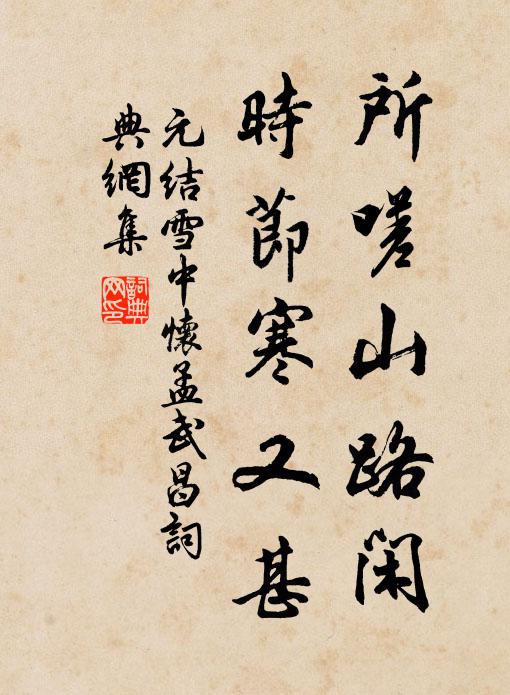 所嗟山路閑
時節寒又甚
元结雪中懷孟武昌詞
典網集
詞典
网印